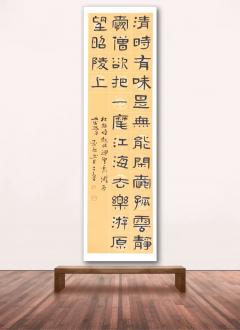 清時有味昰無能閒愛孤雲靜
愛僧欲把一麾江海去樂游原
望昭陵上